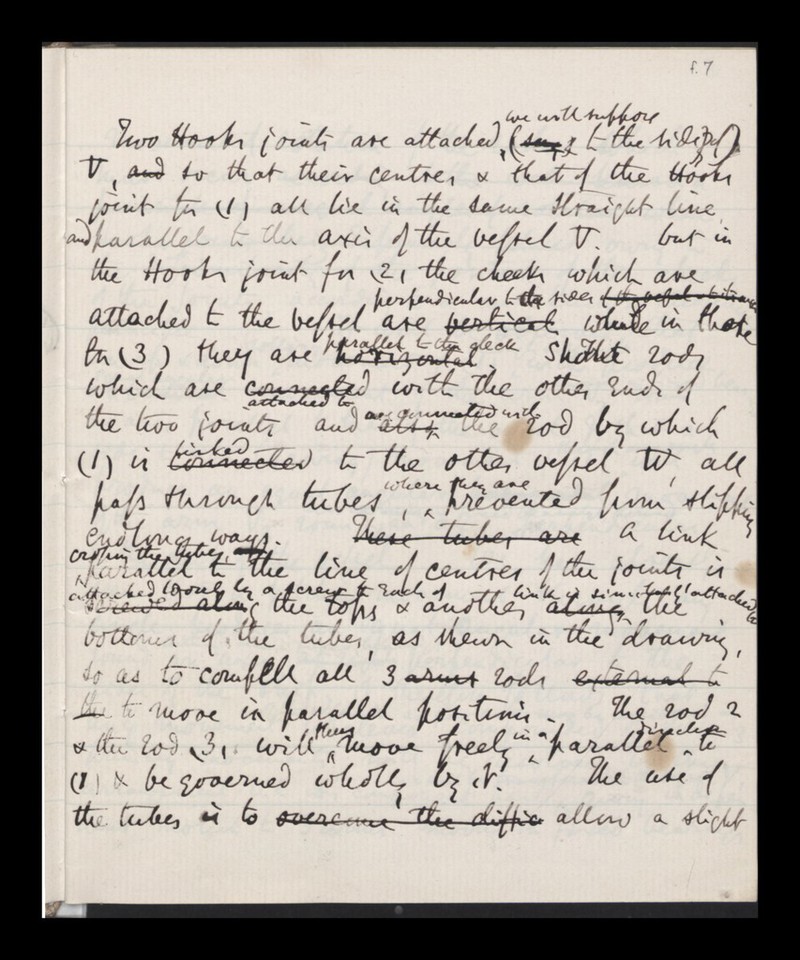 f.7
we will suppose
Two Hooks joints are attached, ( to the sides of)
V, and so that their centres & that of the Hooks
joint for (1) all lie in the same straight line
and parallel to the axis of the vessel V. but in
the Hooks joint for (2) the cheeks which are
perpendicular to the sides
attached to the vessel are vertical while in those
parallel to the deck
for (3) they are horizontal. Short rods
which are connected with the other ends of
attached to are connected with
the two joints and also the rod by which
linked
(1) is connected to the other vessel W, all
where they are
pass through tubes, prevented from slipping
endlong ways. These tubes are A link
crossing the tubes, and
parallel to the line of centres of the joints is
attached by a screw to each of link is similarly attached to
screwed along the tops & another along the
bottoms of the tubes, as shewn in the drawing,
so as to compell all 3 arms rods external to
the to move in parallel positions. The rod 2
then in a direction
& the rod (3) will move freely parallel to
(1) & be governed wholly by it. The use of
the tubes is to overcome the diffic allow a slight